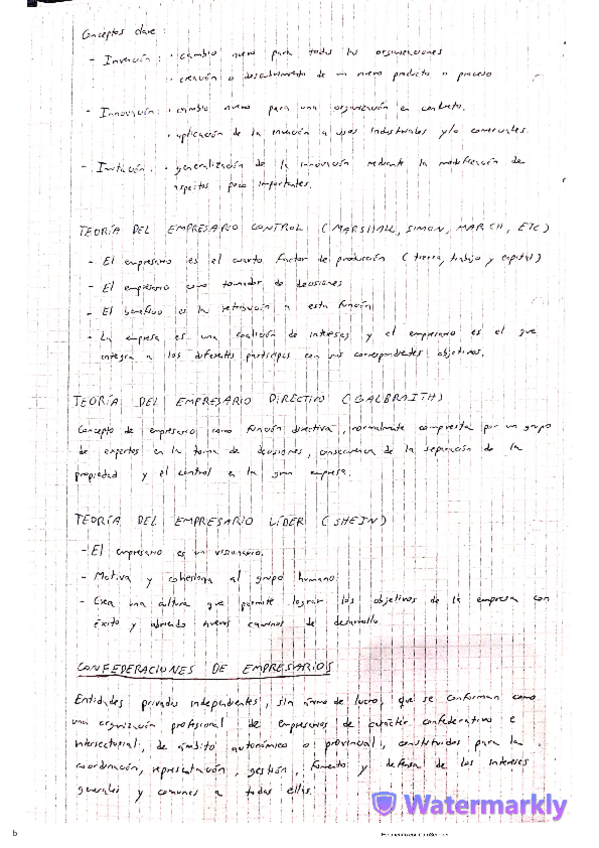 Conceptos clave :
- Invención : · cambio nuevo para todas las organizaciones
· creación o descubrimiento de un nuevo producto o proceso
- Innovación : · cambio nuevo para una organización en concreto.
· aplicación de la invención a usos industriales y/o comerciales.
- Imitación : · generalización de la innovación mediante la modificación de
aspectos poco importantes.
TEORÍA DEL EMPRESARIO CONTROL (MARSHALL, SIMON, MARCH, ETC)
- El empresario es el cuarto factor de producción (tierra, trabajo y capital)
- El empresario como tomador de decisiones
- El beneficio es la retribución a esta función
- La empresa es una coalición de intereses y el empresario es el que
integra a los diferentes partícipes con sus correspondientes objetivos.
TEORÍA DEL EMPRESARIO DIRECTIVO (GALBRAITH)
Concepto de empresario como función directiva, normalmente compuesta por un grupo
de expertos en la toma de decisiones, consecuencia de la separación de la
propiedad y el control en la gran empresa.
TEORÍA DEL EMPRESARIO LÍDER (SHEIN)
- El empresario es un visionario.
- Motiva y cohesiona al grupo humano
- Crea una cultura que permite lograr los objetivos de la empresa con
éxito y abriendo nuevos caminos de desarrollo
CONFEDERACIONES DE EMPRESARIOS
Entidades privadas independientes, sin ánimo de lucro, que se conforman como
una organización profesional de empresarios de carácter confederativo e
intersectorial, de ámbito autonómico o provincial, constituidas para la
coordinación, representación, gestión, fomento y defensa de los intereses
generales y comunes a todas ellas.
Watermarkly
b